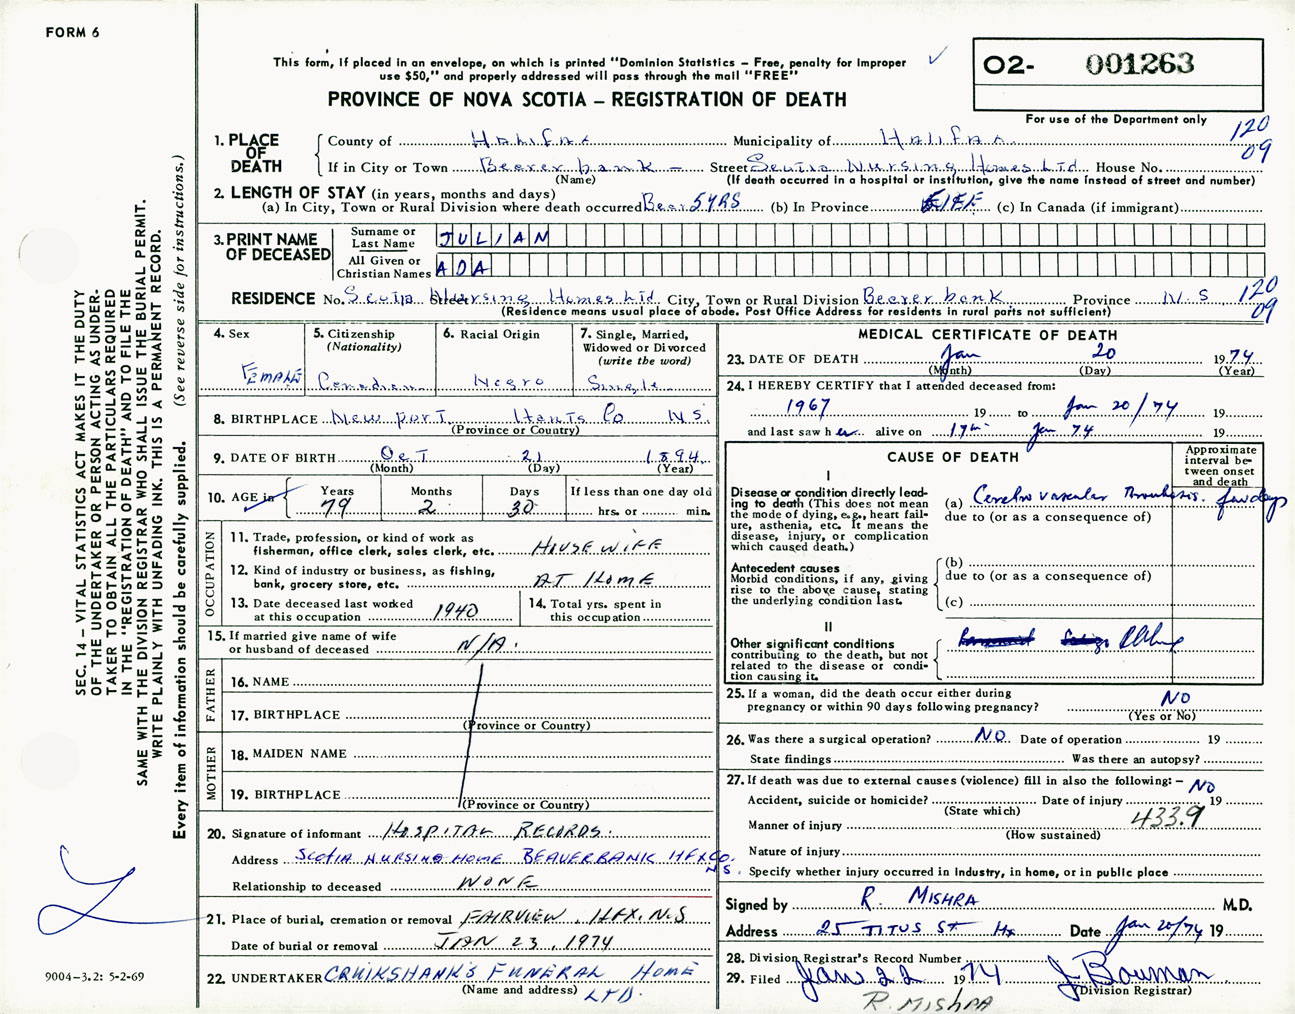 FORM 6
This form, if placed in an envelope, on which is printed "Dominion Statistics – Free, penalty for improper
use $50," and properly addressed will pass through the mail "FREE"
PROVINCE OF NOVA SCOTIA – REGISTRATION OF DEATH
O2- 001263
For use of the Department only
120
09
1. PLACE OF DEATH
County of Halifax Municipality of Halifax
If in City or Town Beever bank – Street Scotia Nursing Homes Ltd House No.
(Name) (If death occurred in a hospital or institution, give the name instead of street and number)
2. LENGTH OF STAY (in years, months and days)
(a) In City, Town or Rural Division where death occurred 5YRS (b) In Province LIFE (c) In Canada (if immigrant)
3. PRINT NAME OF DECEASED
Surname or Last Name JULIAN
All Given or Christian Names ADA
RESIDENCE No. Scotia Street Nursing Homes Ltd City, Town or Rural Division Beever bank Province N.S 120
09
(Residence means usual place of abode. Post Office Address for residents in rural parts not sufficient)
4. Sex
FEMALE
5. Citizenship
(Nationality)
Canadian
6. Racial Origin
Negro
7. Single, Married,
Widowed or Divorced
(write the word)
Single
8. BIRTHPLACE Newport, Hants Co N.S.
(Province or Country)
9. DATE OF BIRTH OCT 21 1894
(Month) (Day) (Year)
10. AGE in
Years Months Days If less than one day old
79 2 30 hrs. or min.
OCCUPATION
11. Trade, profession, or kind of work as
fisherman, office clerk, sales clerk, etc. HOUSEWIFE
12. Kind of industry or business, as fishing,
bank, grocery store, etc. AT HOME
13. Date deceased last worked
at this occupation 1940
14. Total yrs. spent in
this occupation
15. If married give name of wife
or husband of deceased N/A.
FATHER
16. NAME
17. BIRTHPLACE
(Province or Country)
MOTHER
18. MAIDEN NAME
19. BIRTHPLACE
(Province or Country)
20. Signature of informant HOSPITAL RECORDS.
Address SCOTIA NURSING HOME BEAVERBANK HFX CO.
N.S.
Relationship to deceased NONE
21. Place of burial, cremation or removal FAIRVIEW, HFX. N.S
Date of burial or removal JAN 23, 1974
22. UNDERTAKER CRUIKSHANK'S FUNERAL HOME
(Name and address) LTD.
MEDICAL CERTIFICATE OF DEATH
23. DATE OF DEATH Jan 20 1974
(Month) (Day) (Year)
24. I HEREBY CERTIFY that I attended deceased from:
1967 19 to Jan 20/74 19
and last saw her alive on 17th Jan 74 19
CAUSE OF DEATH
Approximate
interval be-
tween onset
and death
I
Disease or condition directly lead-
ing to death (This does not mean
the mode of dying, e.g., heart fail-
ure, asthenia, etc. It means the
disease, injury, or complication
which caused death.)
(a) Cerebrovascular Thrombosis. few days
due to (or as a consequence of)
Antecedent causes
Morbid conditions, if any, giving
rise to the above cause, stating
the underlying condition last.
(b)
due to (or as a consequence of)
(c)
II
Other significant conditions
contributing to the death, but not
related to the disease or condi-
tion causing it.
25. If a woman, did the death occur either during
pregnancy or within 90 days following pregnancy? NO
(Yes or No)
26. Was there a surgical operation? NO. Date of operation 19
State findings Was there an autopsy?
27. If death was due to external causes (violence) fill in also the following: – NO
Accident, suicide or homicide? Date of injury 19
(State which)
Manner of injury 433.9
(How sustained)
Nature of injury
Specify whether injury occurred in industry, in home, or in public place
Signed by R. MISHRA M.D.
Address 25 TITUS ST. Hx Date Jan 20/74 19
28. Division Registrar's Record Number
29. Filed Jan 22 1974 J Bowman
(Division Registrar)
R. MISHRA
SEC. 14 – VITAL STATISTICS ACT MAKES IT THE DUTY
OF THE UNDERTAKER OR PERSON ACTING AS UNDER-
TAKER TO OBTAIN ALL THE PARTICULARS REQUIRED
IN THE "REGISTRATION OF DEATH" AND TO FILE THE
SAME WITH THE DIVISION REGISTRAR WHO SHALL ISSUE THE BURIAL PERMIT.
WRITE PLAINLY WITH UNFADING INK. THIS IS A PERMANENT RECORD.
Every item of information should be carefully supplied. (See reverse side for instructions.)
9004–3.2: 5-2-69